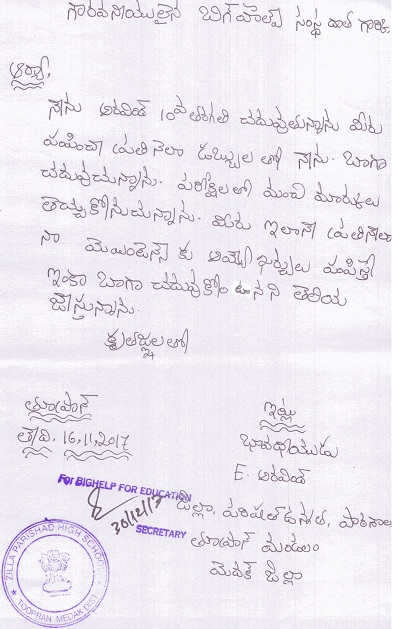 గౌరవనీయులైన బిగ్ హెల్ప్ సంస్థ వారి గారికి
ఆర్యా,
నేను అరవింద్ 10వ తరగతి చదువుతున్నాను మీరు
పంపించే ప్రతి నెలా డబ్బుల తో నేను. బాగా
చదువుచున్నాను. పరీక్షలలో మంచి మార్కులు
తెచ్చుకోనుచున్నాను. మీరు ఇలానే ప్రతినెలా
నా మెయింటెన్స్ కు అయ్యే ఖర్చులు పంపిస్తే
ఇంకా బాగా చదువుకోం టానని తెలియ
జేస్తున్నాను.
కృతజ్ఞలతో
తూప్రాన్
తేది. 16,11,2017
ఇట్లు
భవదీయుడు
E. అరవింద్
జిల్లా, పరిషత్ ఉన్నత, పాఠశాల
తూప్రాన్ మండలం
మెదక్ జిల్లా
For BIGHELP FOR EDUCATION
30/12/17
SECRETARY
ZILLA PARISHAD HIGH SCHOOL
TOOPRAN MEDAK DIST